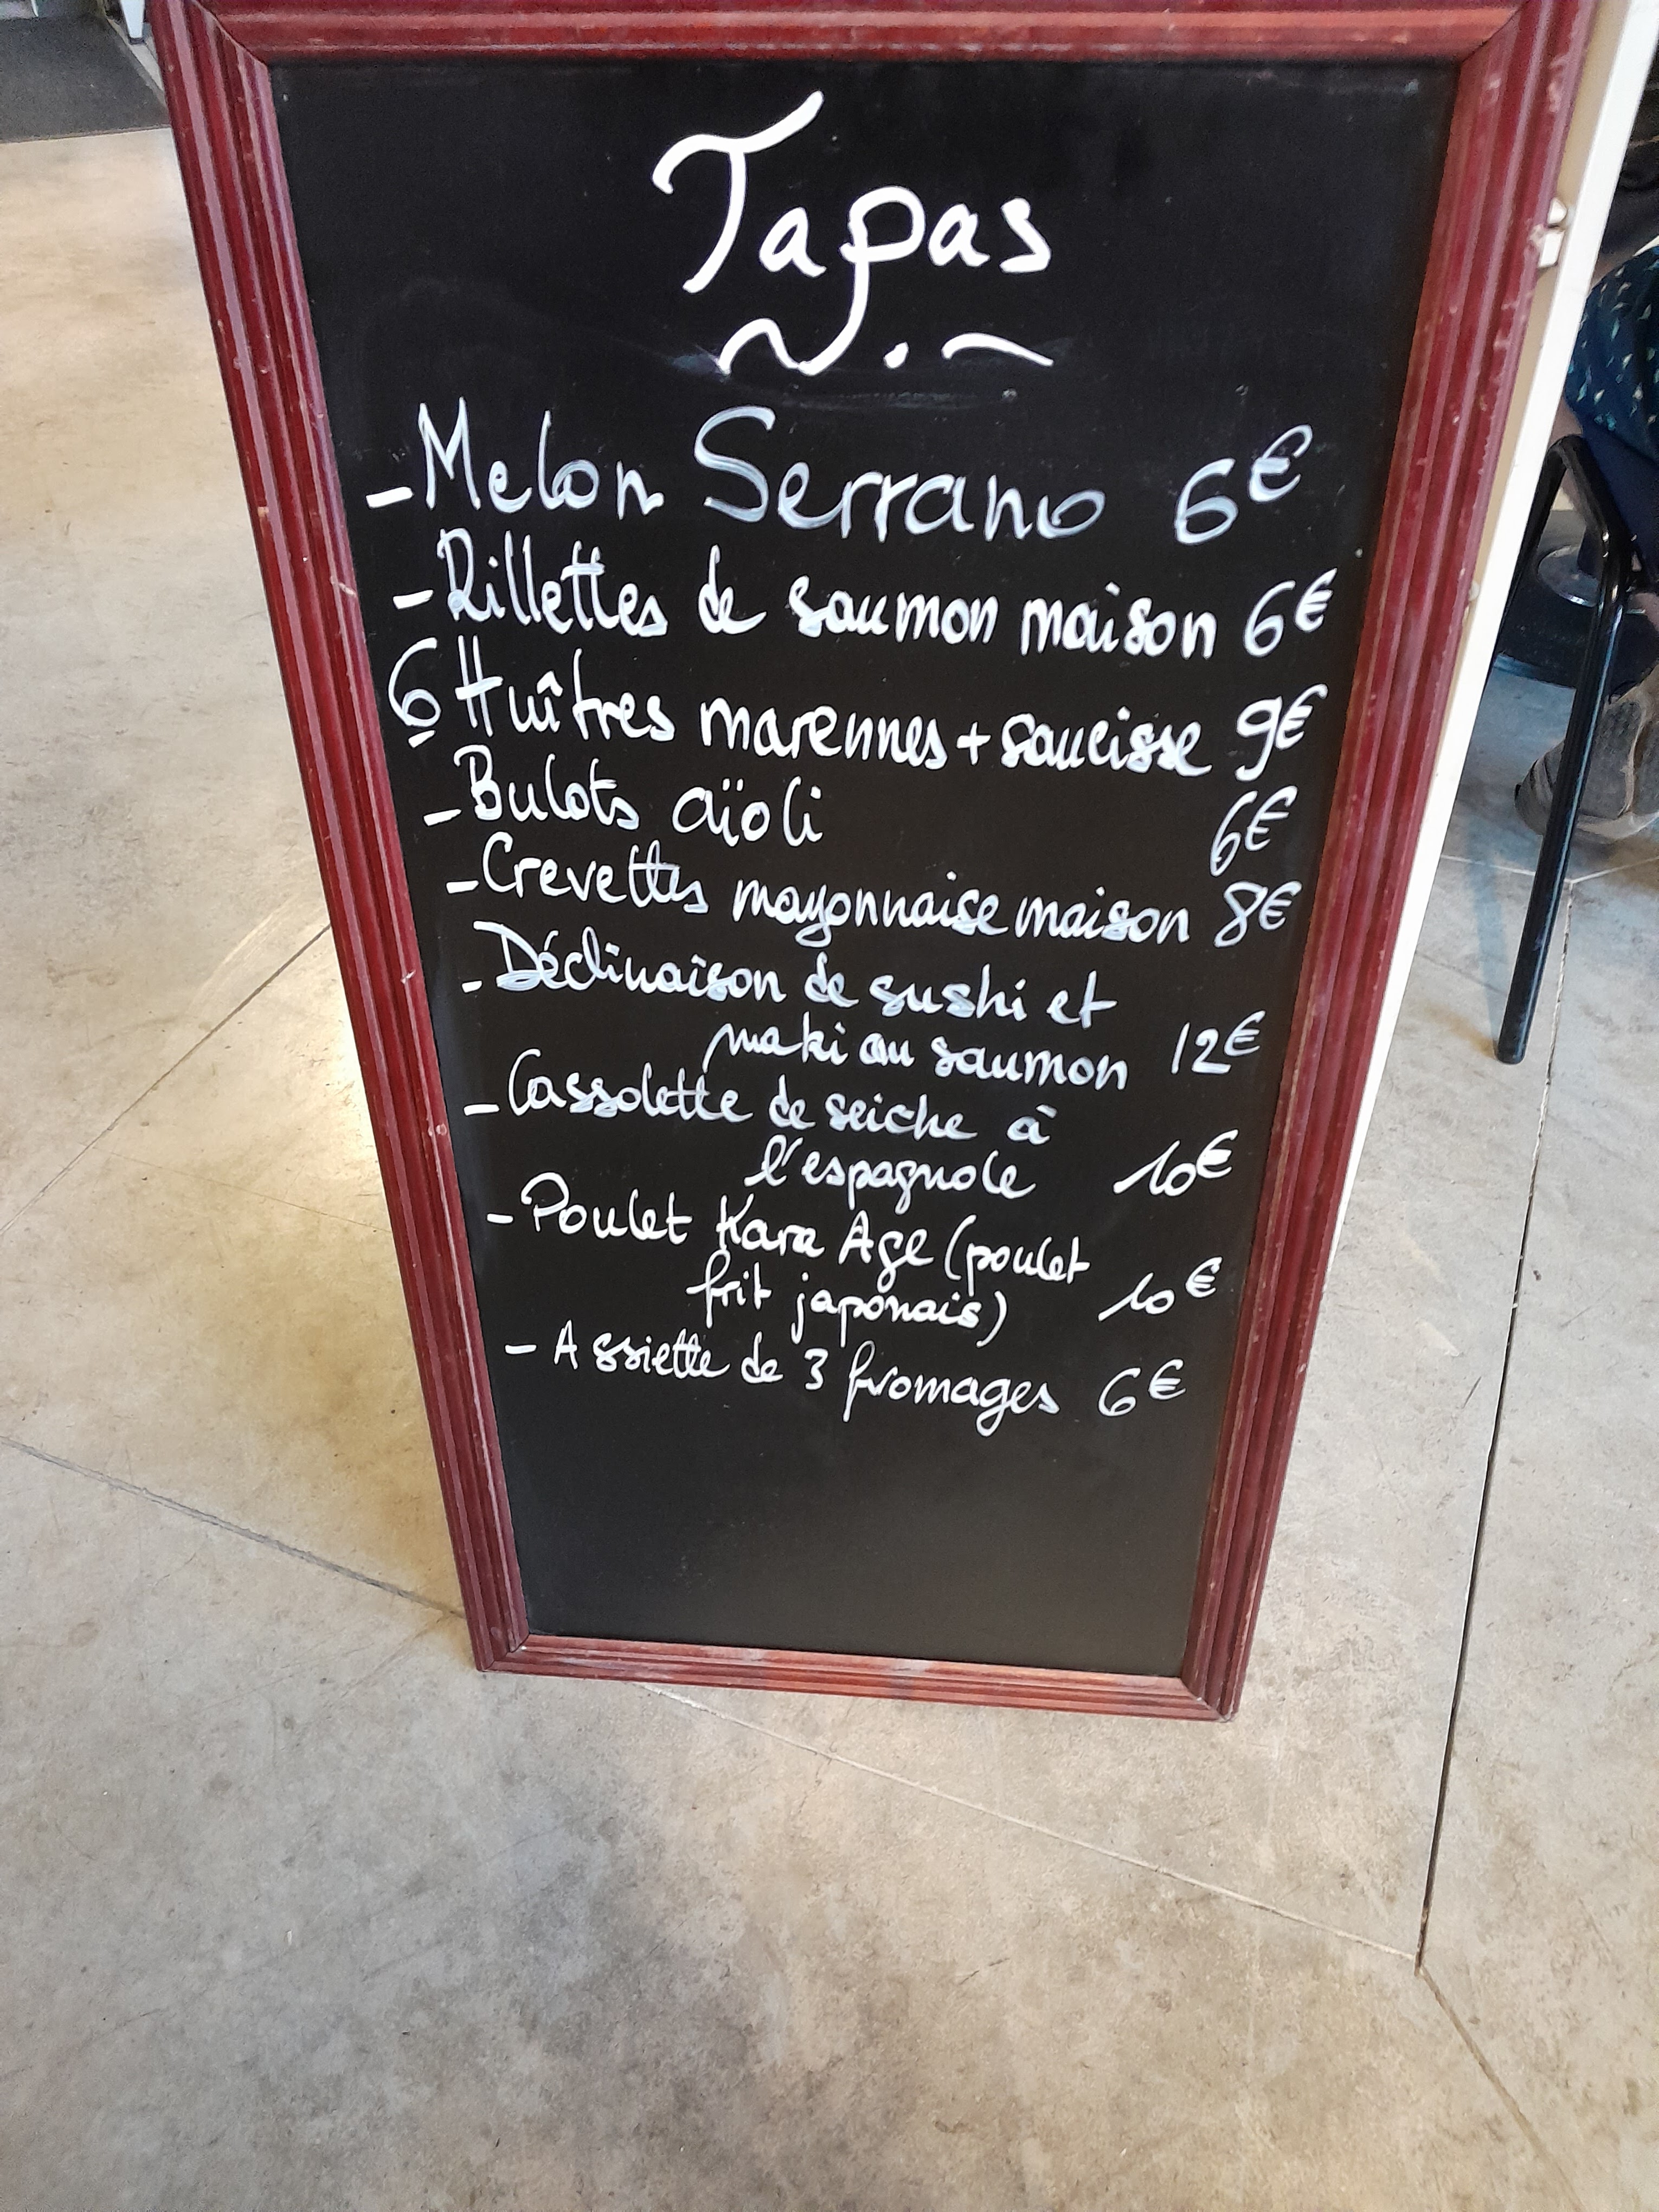 Tapas
- Melon Serrano 6€
- Rillettes de saumon maison 6€
6 Huîtres marennes + saucisse 9€
- Bulots aïoli 6€
- Crevettes mayonnaise maison 8€
- Déclinaison de sushi et
maki au saumon 12€
- Cassolette de seiche à
l'espagnole 10€
- Poulet Kara Age (poulet
frit japonais) 10€
- Assiette de 3 fromages 6€